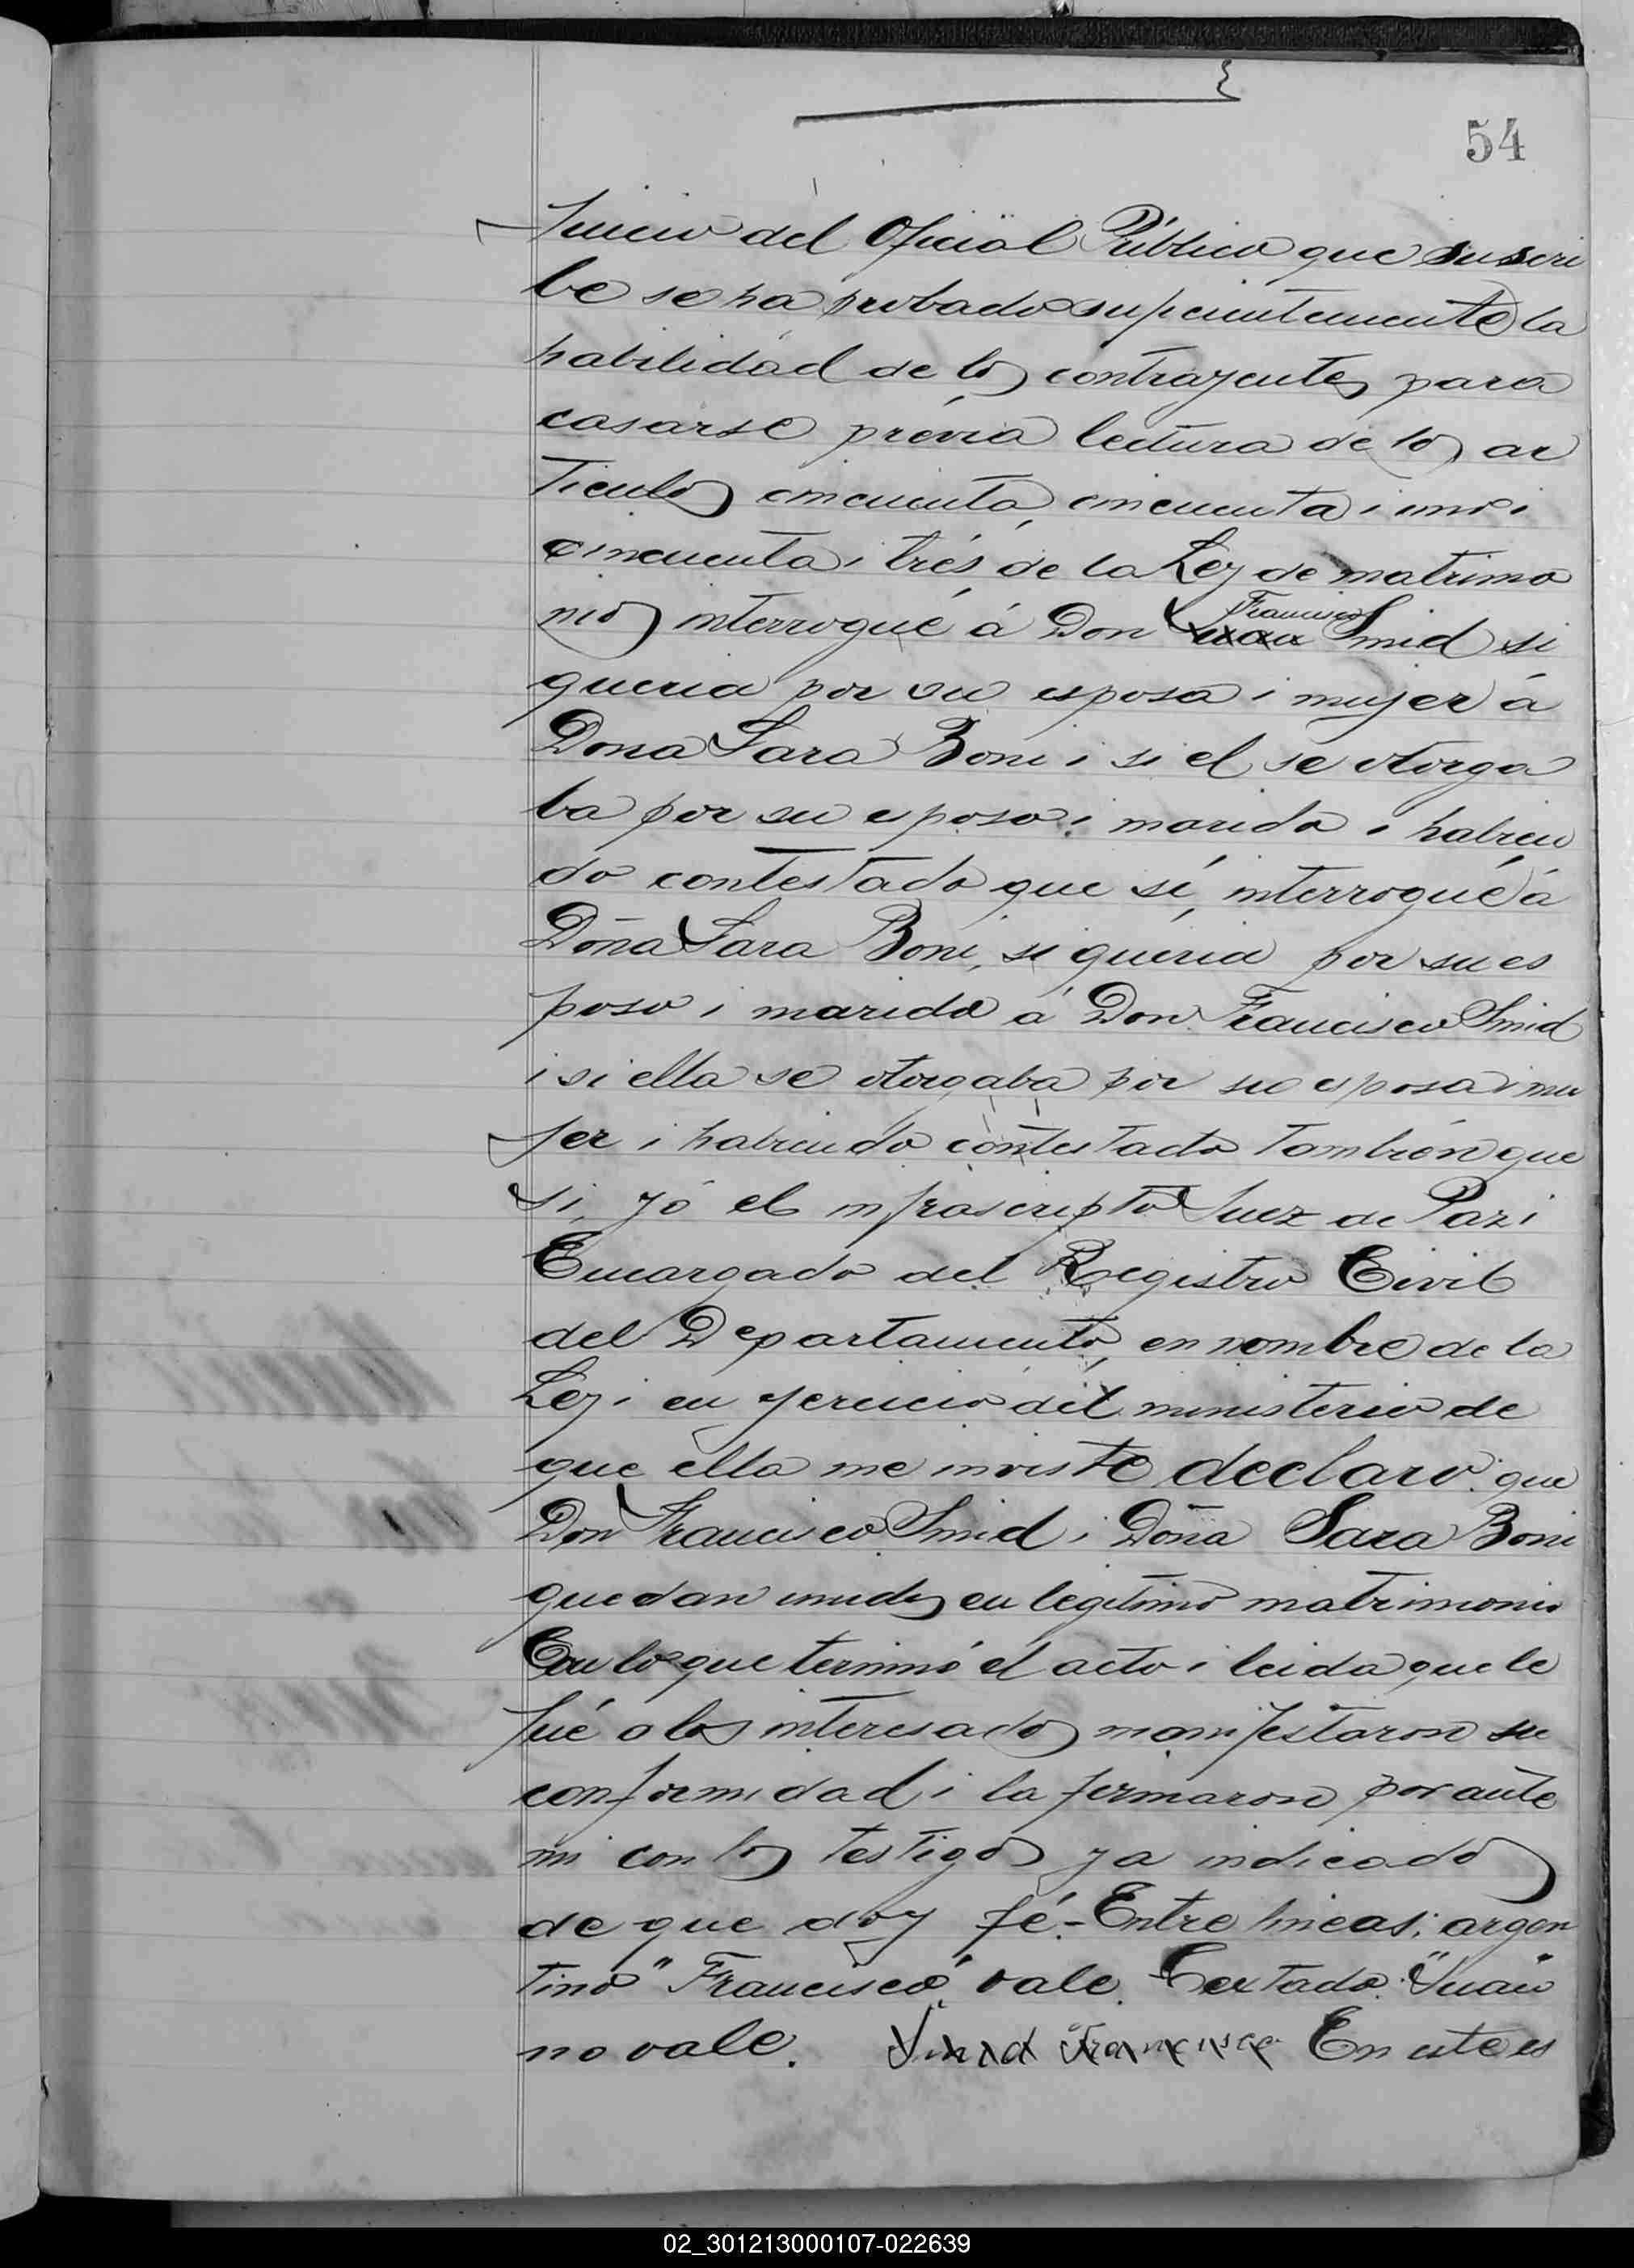 54
Juicio del Oficial Público que suscri
be se ha probado suficientemente la
habilidad de los contrayentes para
casarse prévia lectura de los ar
tículos cincuenta, cincuenta i uno i
cincuenta i trés, de la Ley de matrimo
nios interrogué á Don Juan Francisco Smid si
queria por su esposa i mujer á
Dona Sara Boni i si el se otorga
ba por su esposo i marido i habien
do contestado que sí, interrogué á
Doña Sara Boni, si queria por su es
poso i marido á Don Francisco Smid
i si ella se otorgaba por su esposa i mu
jer i habiendo contestado también que
si, yó el infrascripto Juez de Paz i
Encargado del Registro Civil
del Departamento, en nombre de la
Ley i en ejercicio del ministerio de
que ella me inviste declaro que
Don Francisco Smid i Doña Sara Boni
quedan unidos en legitimo matrimonio
Con lo que terminó el acto i leida que le
fué a los interesados manifestaron su
conformidad i la firmaron por ante
mi con los testigos ya indicados
de que doy fé.- Entre lineas: argen
tino" Francisco" vale. Textado: "Juan"
no vale. Smid Francisco En este es
02_301213000107-022639